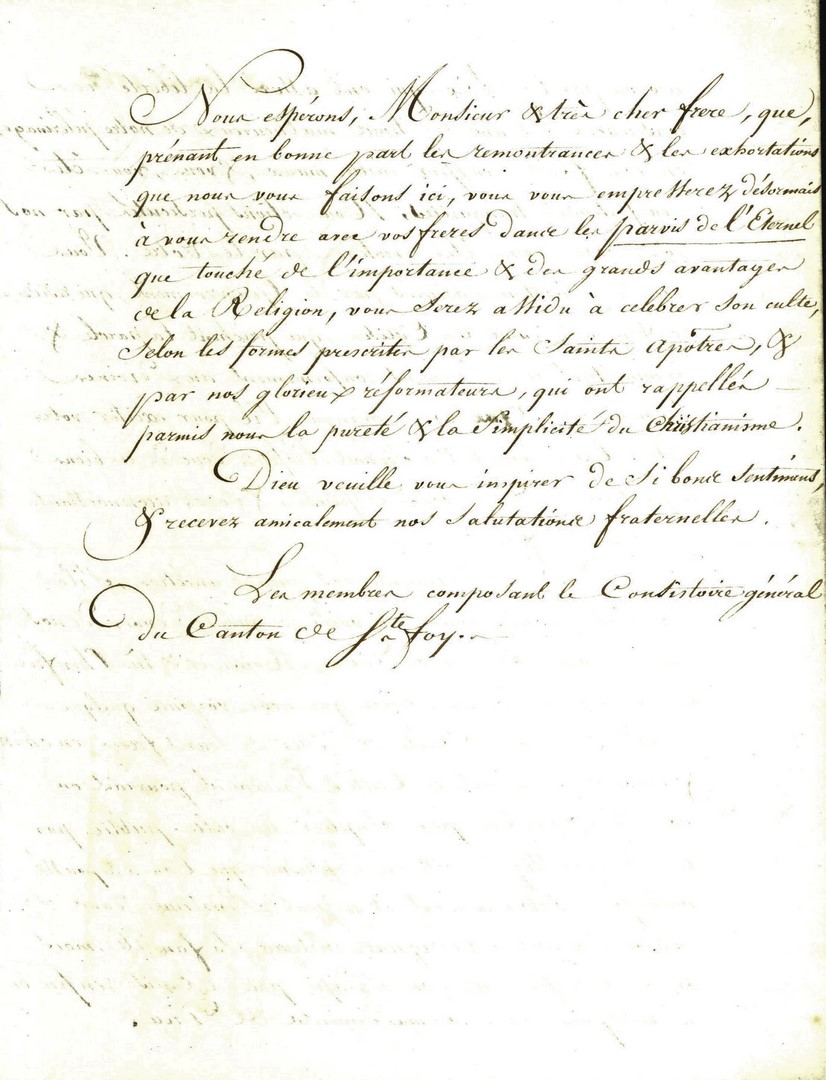 Nous espérons, Monsieur & très cher frere, que,
prénant en bonne part les remontrances & les exhortations
que nous vous faisons ici, vous vous empresserez désormais
à vous rendre avec vos freres dans les parvis de l'Eternel
que touché de l'importance & des grands avantages
de la Religion, vous serez assidu à celebrer son culte,
selon les formes prescrites par les Saints Apôtres, &
par nos glorieux réformateurs, qui ont rappellés
parmis nous la pureté & la simplicité du Christianisme.
Dieu veuille vous inspirer de si bons sentimens,
& recevez amicalement nos salutations fraternelles.
Les membres composant le Consistoire général
du Canton de Ste foy.